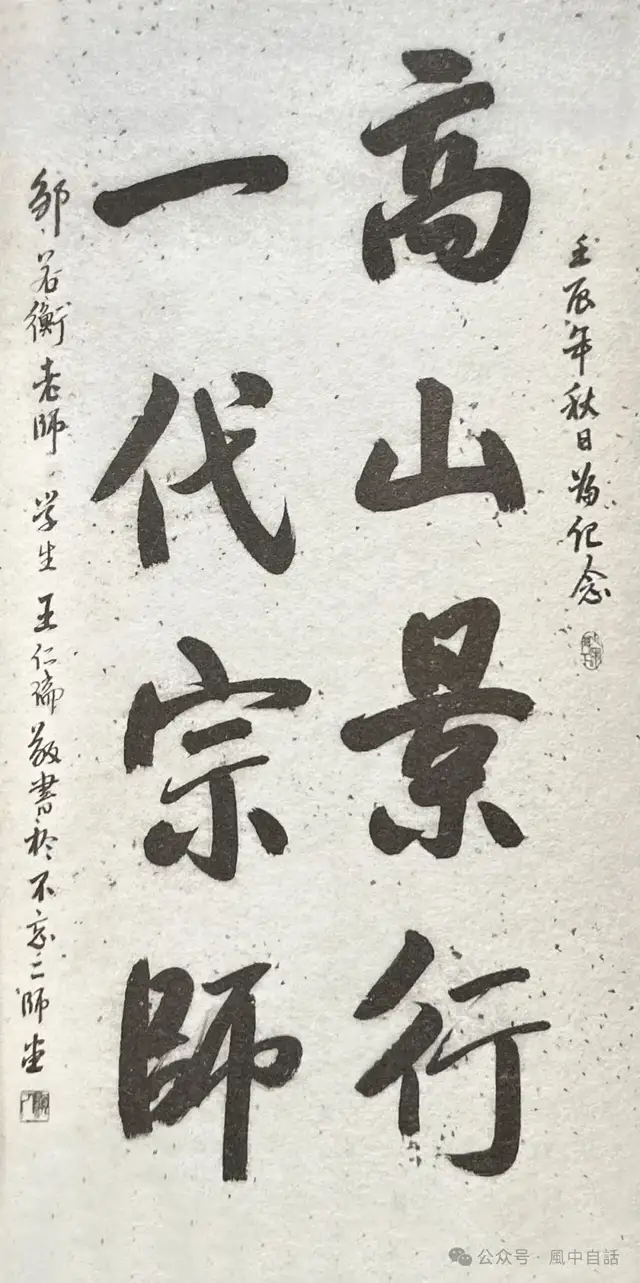 壬辰年秋日為纪念
高山景行
一代宗師
邹若衡老師 学生王仁瑞敬書於不忘二師堂
公众号·風中自話